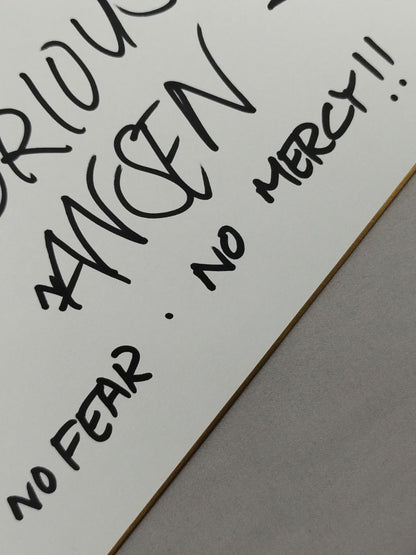 ORIOUS
HANSEN
NO FEAR . NO MERCY!!